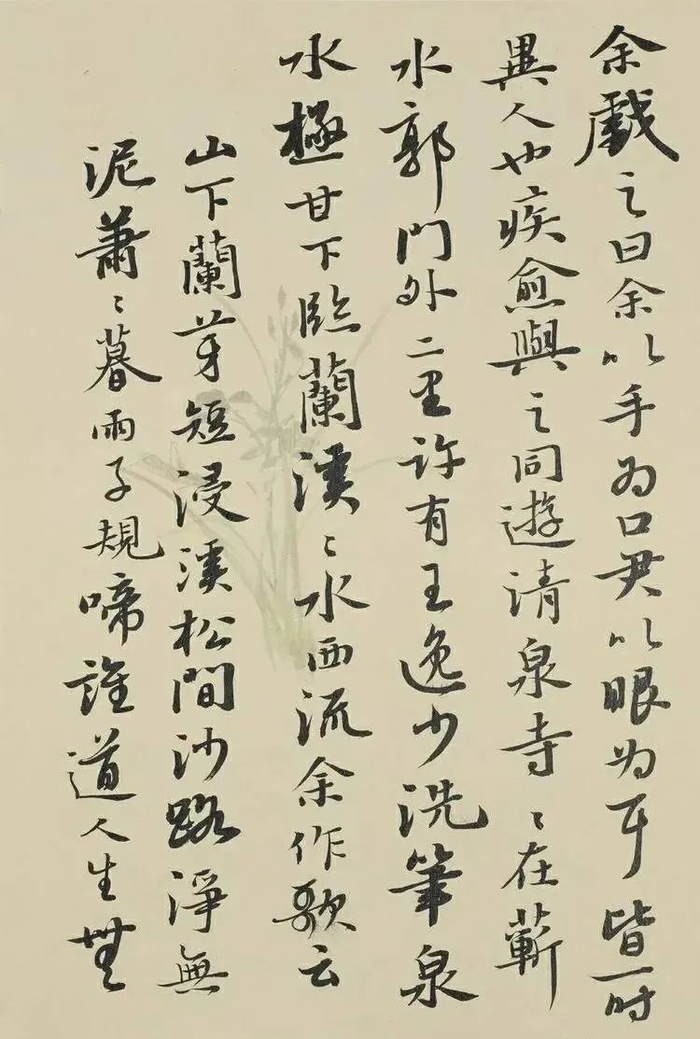 余戲之曰余以手為口君以眼為耳皆一時
異人也疾愈與之同遊清泉寺〻在蘄
水郭門外二里許有王逸少洗筆泉
水極甘下臨蘭溪〻水西流余作歌云
山下蘭芽短浸溪松間沙路淨無
泥蕭〻暮雨子規啼誰道人生無